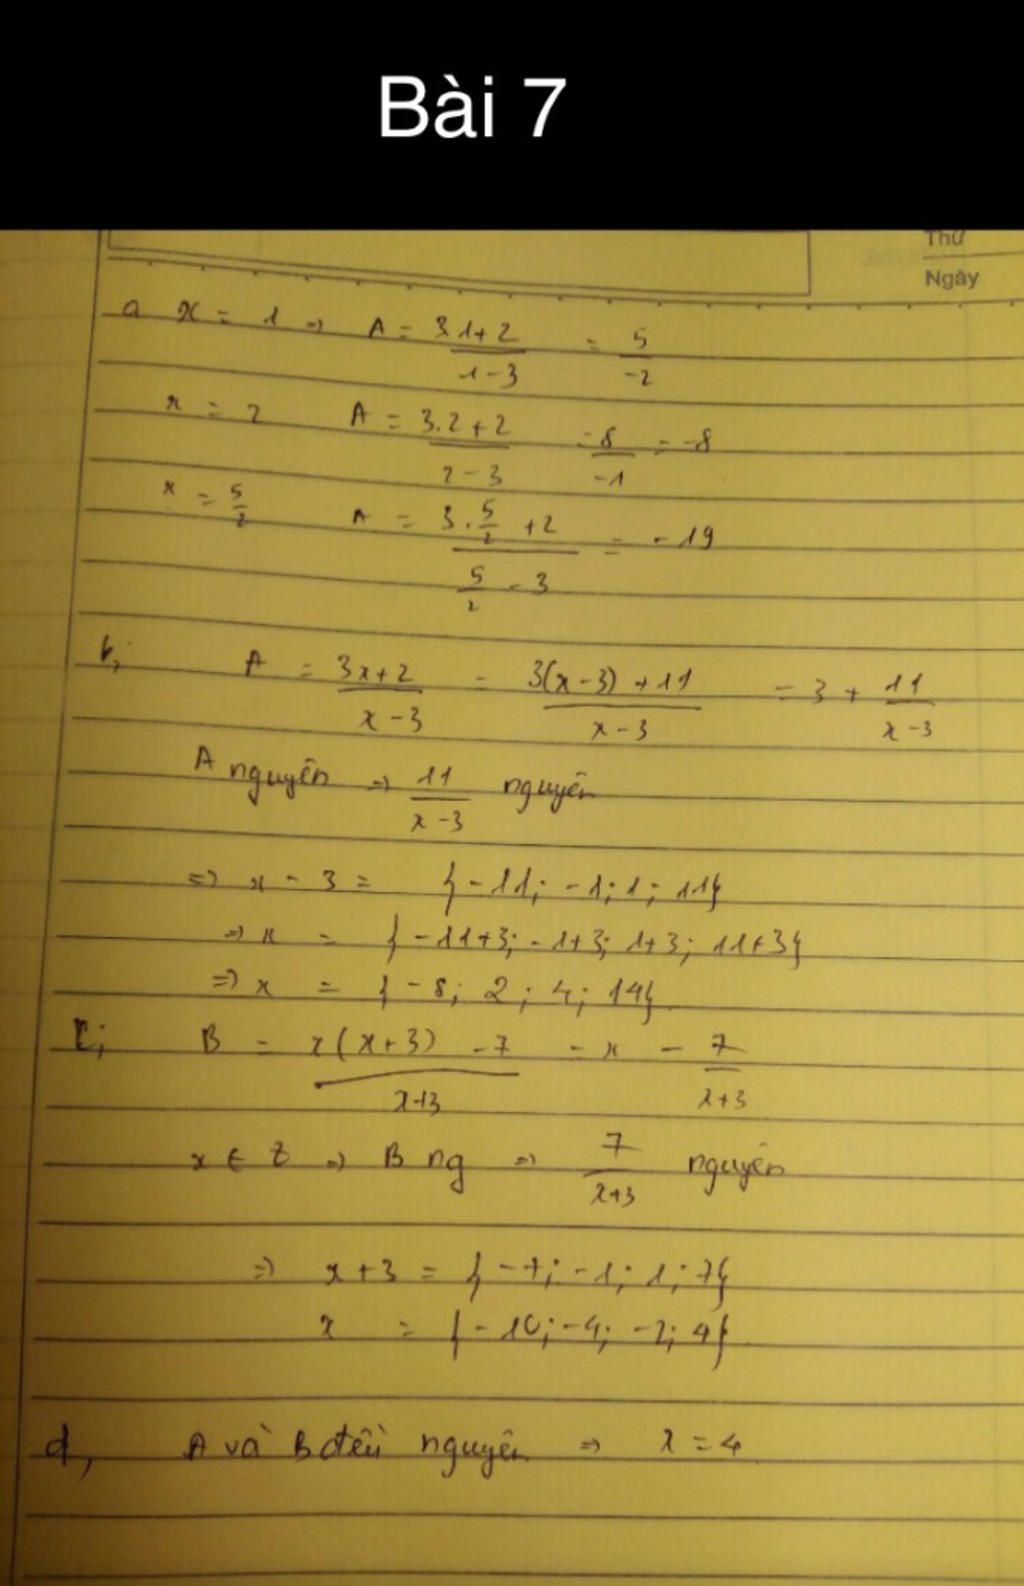 Bài 7
Thứ
Ngày
a x = 1 => A = 3.1+2 / 1-3 = 5 / -2
x = 2 A = 3.2+2 / 2-3 = 8 / -1 = -8
x = 5/2 A = 3.5/2 +2 / 5/2 - 3 = -19
b, A = 3x+2 / x-3 = 3(x-3)+11 / x-3 = 3 + 11 / x-3
A nguyên => 11 / x-3 nguyên
=> x - 3 = {-11; -1; 1; 11}
=> x = {-11+3; -1+3; 1+3; 11+3}
=> x = {-8; 2; 4; 14}
c; B = x(x+3) -7 / x+3 = x - 7 / x+3
x ∈ Z => B ng => 7 / x+3 nguyên
=> x+3 = {-7; -1; 1; 7}
x = {-10; -4; -2; 4}
d, A và B đều nguyên => x = 4